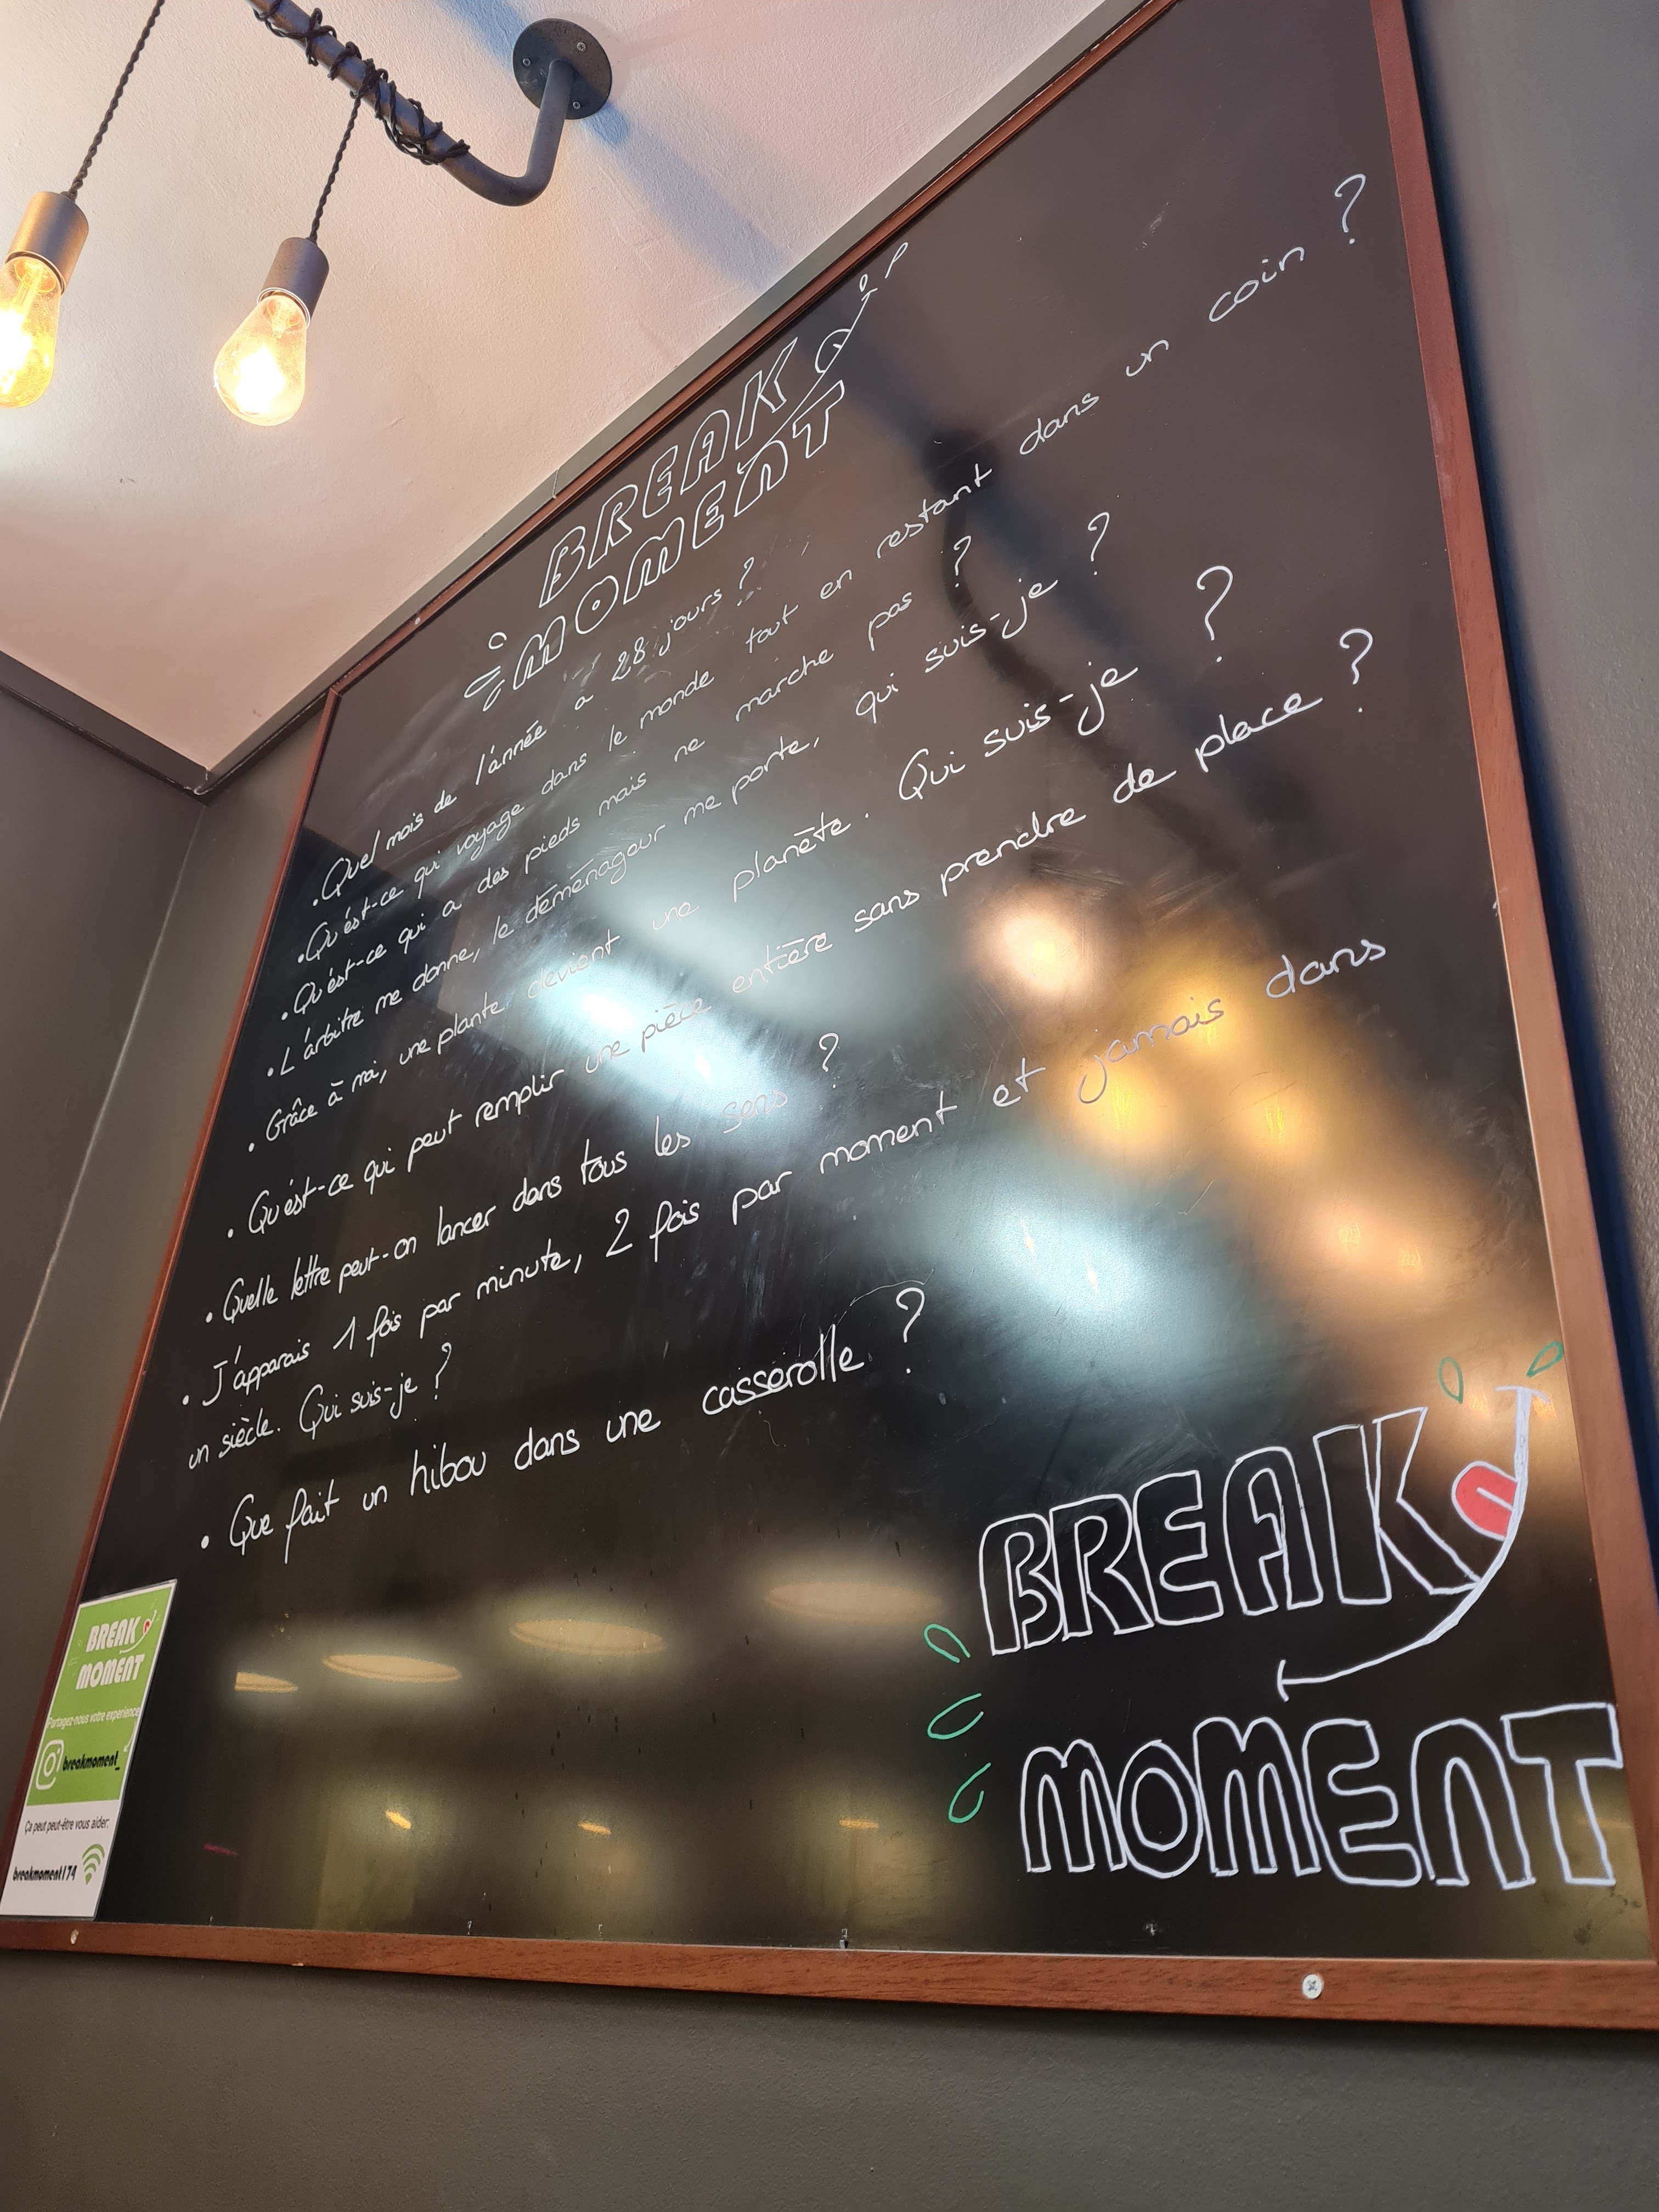 BREAK
MOMENT
• Quel mois de l'année a 28 jours ?
• Qu'est-ce qui voyage dans le monde tout en restant dans un coin ?
• Qu'est-ce qui a des pieds mais ne marche pas ?
• L'arbitre me donne, le déménageur me porte, qui suis-je ?
• Grâce à moi, une plante devient une planète. Qui suis-je ?
• Qu'est-ce qui peut remplir une pièce entière sans prendre de place ?
• Quelle lettre peut-on lancer dans tous les sens ?
• J'apparais 1 fois par minute, 2 fois par moment et jamais dans
un siècle. Qui suis-je ?
• Que fait un hibou dans une casserolle ?
BREAK
MOMENT
BREAK
MOMENT
Partagez-nous votre experience
breakmoment_
Ça peut peut-être vous aider:
breakmoment174